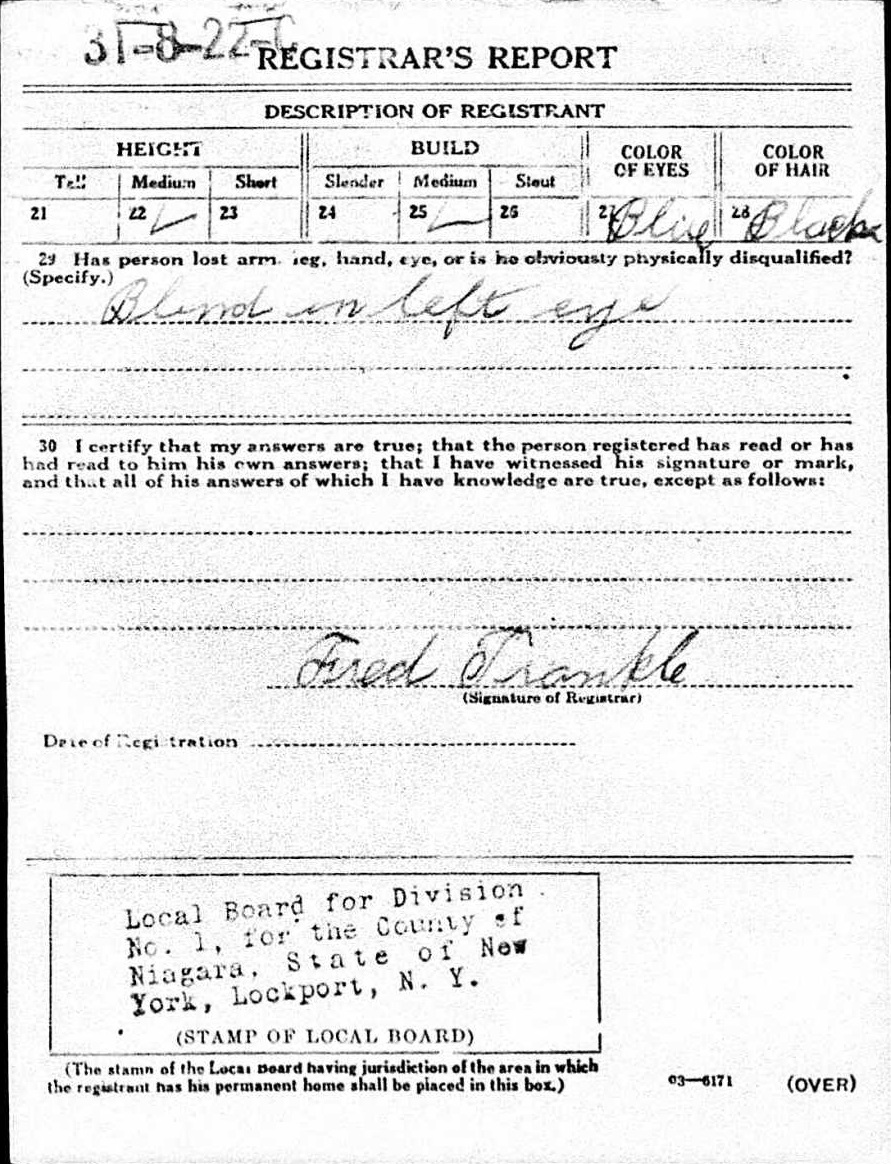 31-8-22-C
REGISTRAR'S REPORT
DESCRIPTION OF REGISTRANT
HEIGHT BUILD COLOR OF EYES COLOR OF HAIR
Tall Medium Short Slender Medium Stout
21 22 ✓ 23 24 25 ✓ 26 27 Blue 28 Black
29 Has person lost arm, leg, hand, eye, or is he obviously physically disqualified?
(Specify.)
Blind in left eye
30 I certify that my answers are true; that the person registered has read or has
had read to him his own answers; that I have witnessed his signature or mark,
and that all of his answers of which I have knowledge are true, except as follows:
Fred Trankle
(Signature of Registrar)
Date of Registration
Local Board for Division
No. 1, for the County of
Niagara, State of New
York, Lockport, N. Y.
(STAMP OF LOCAL BOARD)
(The stamp of the Local Board having jurisdiction of the area in which
the registrant has his permanent home shall be placed in this box.)
03—6171 (OVER)